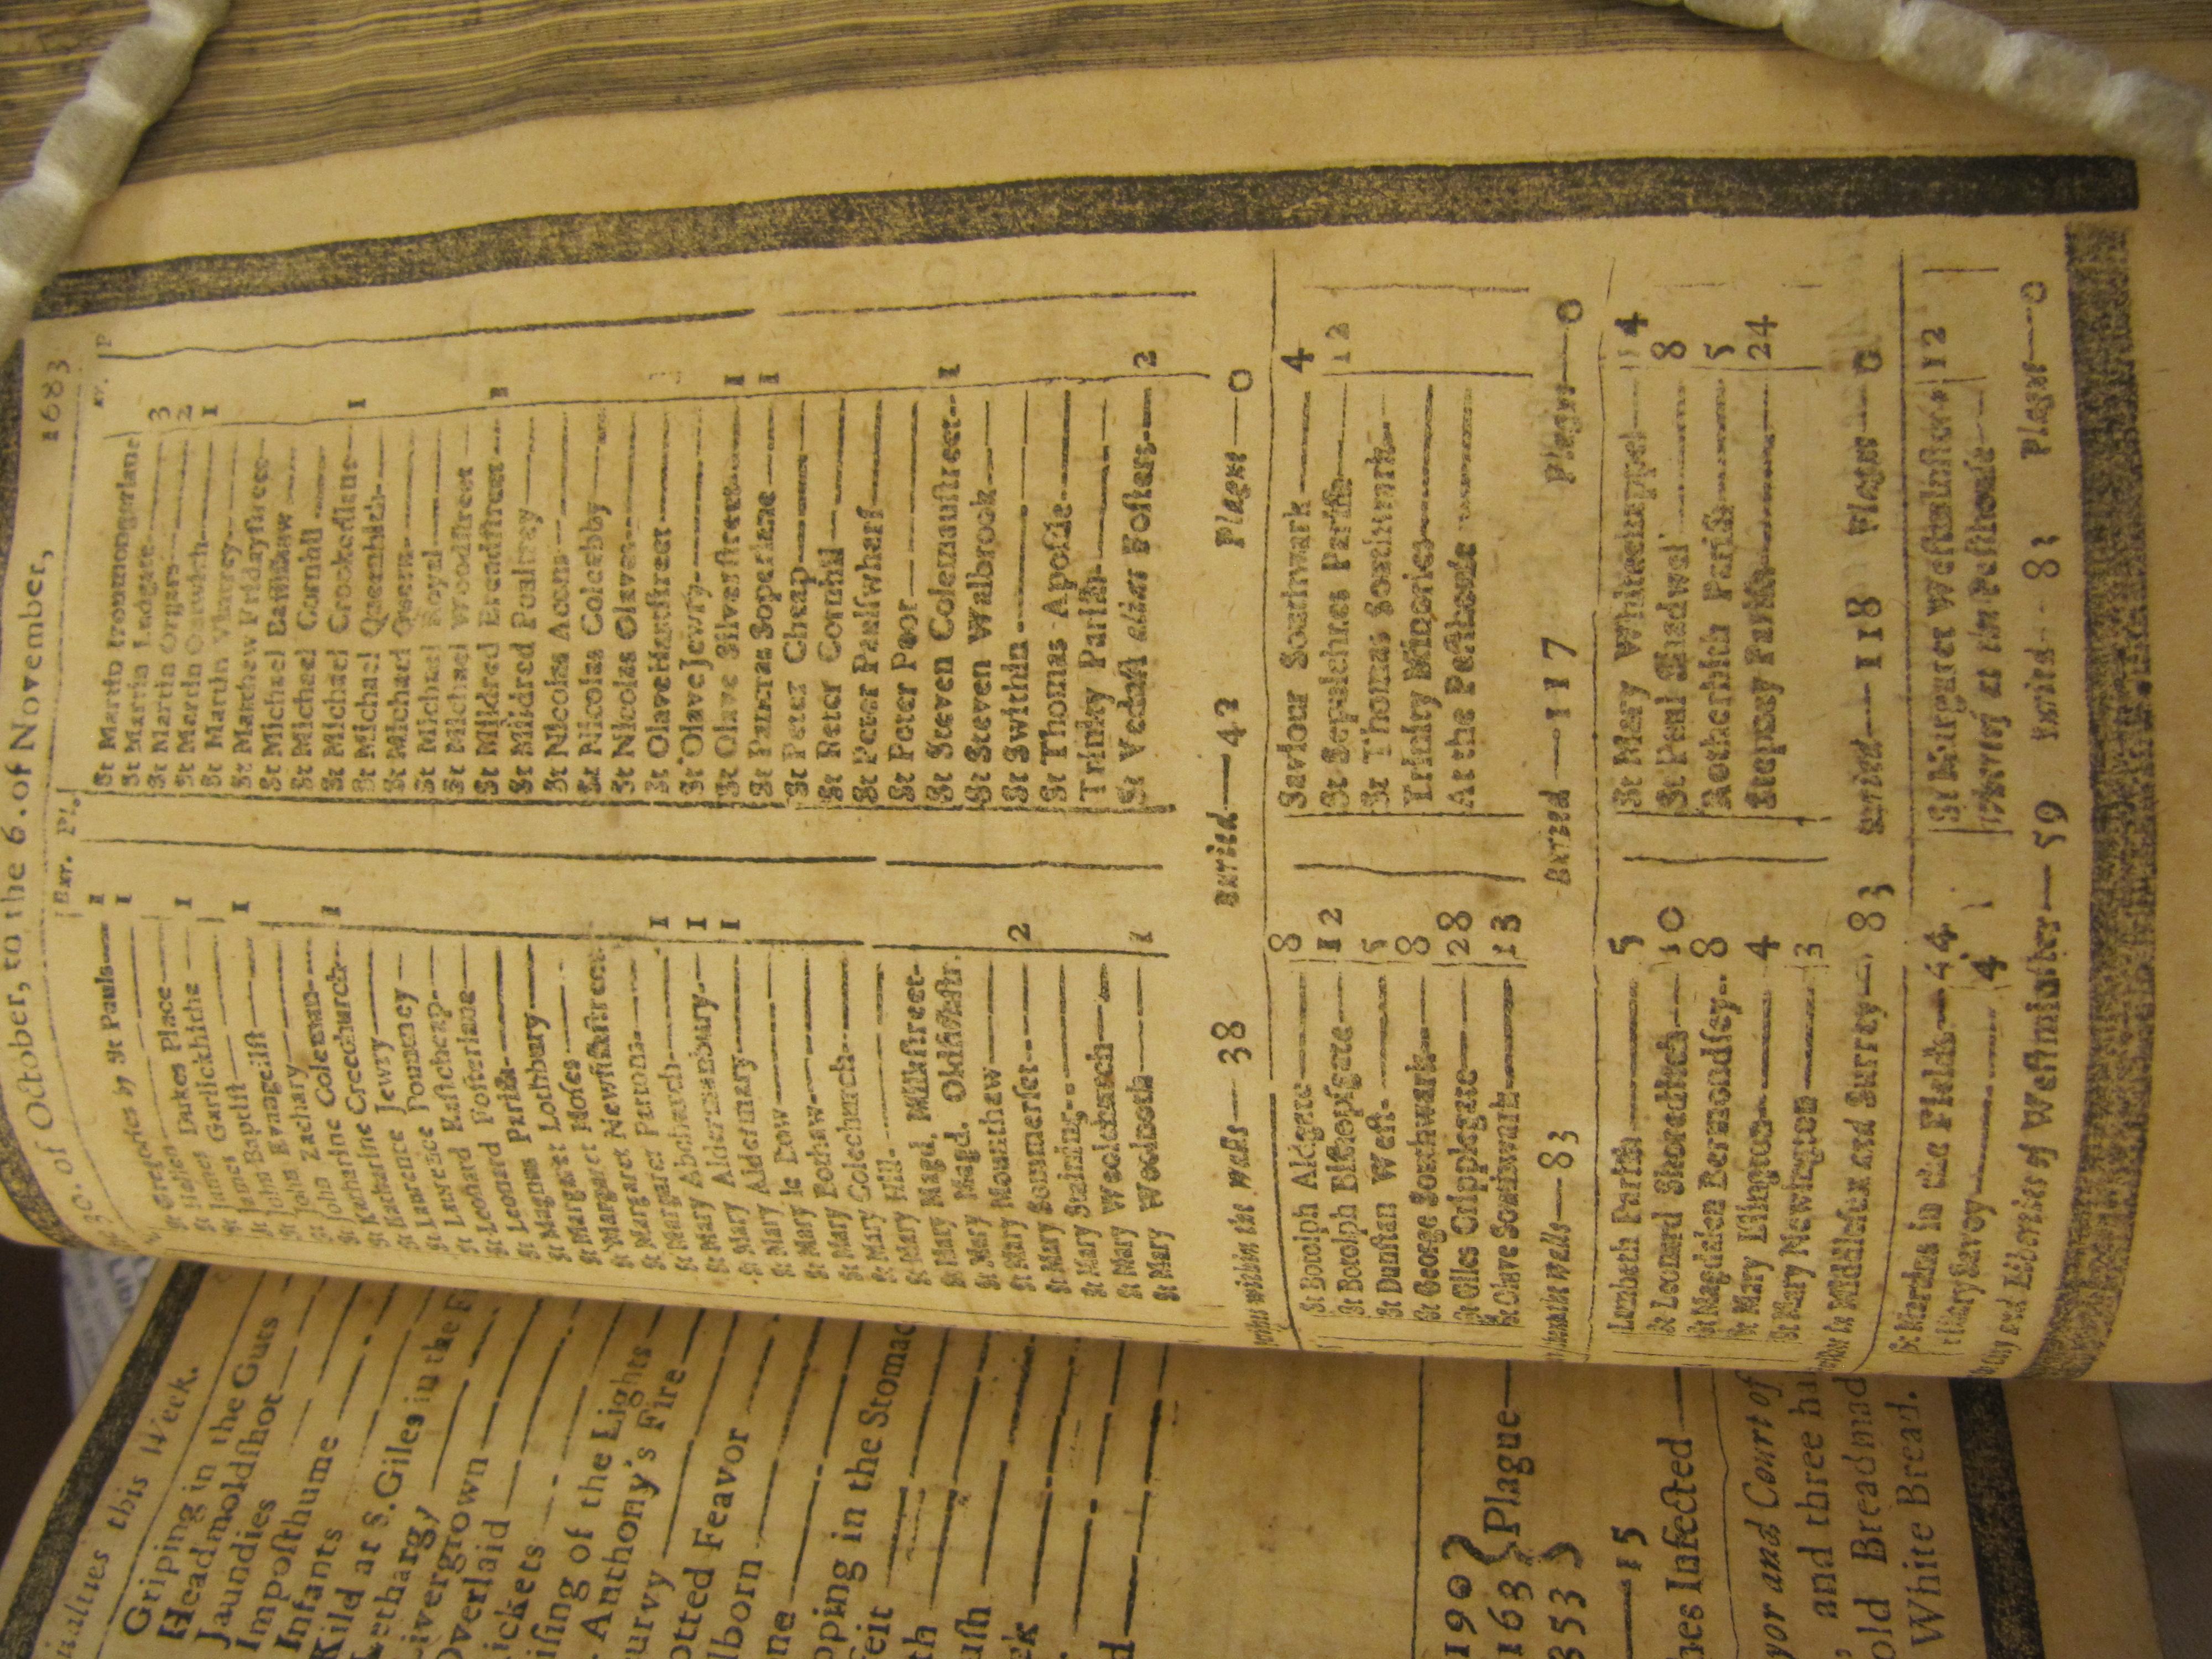 30. of October, to the 6. of November, 1683
Bur. Pl.
St Gregories by St Pauls— 1
1
St Hellen
St James Dukes Place—
St James Garlickhithe 1
St John Baptist—
St John Evangelist— 1
St John Zachary—
St Katharine Coleman—
St Katharine Creechurch— 1
St Lawrence Jewry—
St Lawrence Pountney—
St Leonard Eastcheap—
St Leonard Fosterlane—
St Magnus Parish—
St Margaret Lothbury—
St Margaret Moses—
St Margaret Newfishstreet
St Margaret Pattons—
St Mary Abchurch— 1
St Mary Aldermanbury— 1
St Mary Aldermary— 1
St Mary le Bow—
St Mary Bothaw—
St Mary Colechurch—
St Mary Hill—
St Mary Magd. Milkstreet—
St Mary Magd. Oldfishstr.
St Mary Mounthaw—
St Mary Sommerset— 2
St Mary Staining—
St Mary Woolchurch—
St Mary Woolnoth— 1
St Martin Iremongerlane
St Martin Ludgate— 3
St Martin Orgars— 2
St Martin Outwich— 1
St Martin Vintrey—
St Matthew Fridaystreet—
St Michael Bassishaw—
St Michael Cornhil—
St Michael Crookedlane— 1
St Michael Queenhith—
St Michael Quern—
St Michael Royal—
St Michael Woodstreet—
St Mildred Breadstreet— 1
St Mildred Poultrey—
St Nicolas Acons—
St Nicolas Coleabby—
St Nicolas Olaves—
St Olave Hartstreet—
St Olave Jewry—
St Olave Silverstreet— 1
St Pancras Soperlane— 1
St Peter Cheap—
St Peter Cornhil—
St Peter Paulswharf—
St Peter Poor—
St Steven Colemanstreet— 1
St Steven Walbrook—
St Swithin—
St Thomas Apostle—
Trinity Parish—
St Vedast alias Fosters— 2
within the walls— 38 Buried— 42 Plague—0
St Botolph Aldgate— 8
St Botolph Bishopsgate— 12
St Dunstan West— 5
St George Southwark— 8
St Giles Cripplegate— 28
St Olave Southwark— 13
Saviour Southwark— 4
St Sepulchres Parish— 12
St Thomas Southwark—
Trinity Minories—
At the Pesthouse
without the walls— 83 Buried— 117 Plague—0
Lambeth Parish— 5
St Leonard Shoreditch— 10
St Magdalen Bermondsey— 8
St Mary Islington— 4
St Mary Newington— 3
St Mary Whitechappel— 14
St Paul Shadwel 8
Rotherhith Parish— 5
Stepney Parish— 24
in Middlesex and Surrey— 83 Buried— 118 Plague—0
St Martins in the Fields— 44
St Mary Savoy— 4
St Margaret Westminster 12
whereof at the Pesthouse—
City and Liberties of Westminster— 59 Buried— 83 Plague—0
this Week.
Griping in the Guts
Headmoldshot
Jaundies
Imposthume
Infants
Kild at S.Giles in the F
Lethargy
Livergrown
Overlaid
Rickets
Rising of the Lights
S. Anthony's Fire
Scurvy
Spotted Feavor
Stopping in the Stomac
190
163 Plague—
353
15
Infected
Mayor and Court of
and three ha
White Bread.